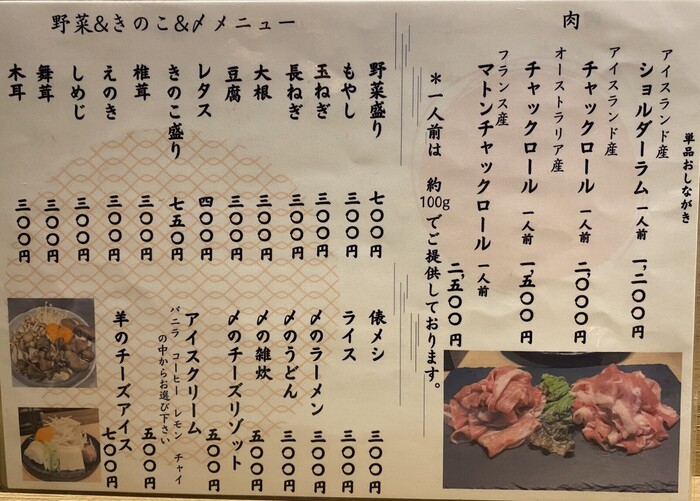 単品おしながき
肉
アイスランド産
ショルダーラム 一人前 一、二〇〇円
アイスランド産
チャックロール 一人前 二、〇〇〇円
オーストラリア産
チャックロール 一人前 一、五〇〇円
フランス産
マトンチャックロール 一人前 二、五〇〇円
*一人前は 約100gでご提供しております。
野菜&きのこ&〆メニュー
野菜盛り 七〇〇円
もやし 三〇〇円
玉ねぎ 三〇〇円
長ねぎ 三〇〇円
大根 三〇〇円
豆腐 三〇〇円
レタス 四〇〇円
きのこ盛り 七五〇円
椎茸 三〇〇円
えのき 三〇〇円
しめじ 三〇〇円
舞茸 三〇〇円
木耳 三〇〇円
俵メシ 三〇〇円
ライス 三〇〇円
〆のラーメン 三〇〇円
〆のうどん 三〇〇円
〆の雑炊 五〇〇円
〆のチーズリゾット 五〇〇円
アイスクリーム 五〇〇円
バニラ コーヒー レモン チャイ
の中からお選び下さい
羊のチーズアイス 七〇〇円